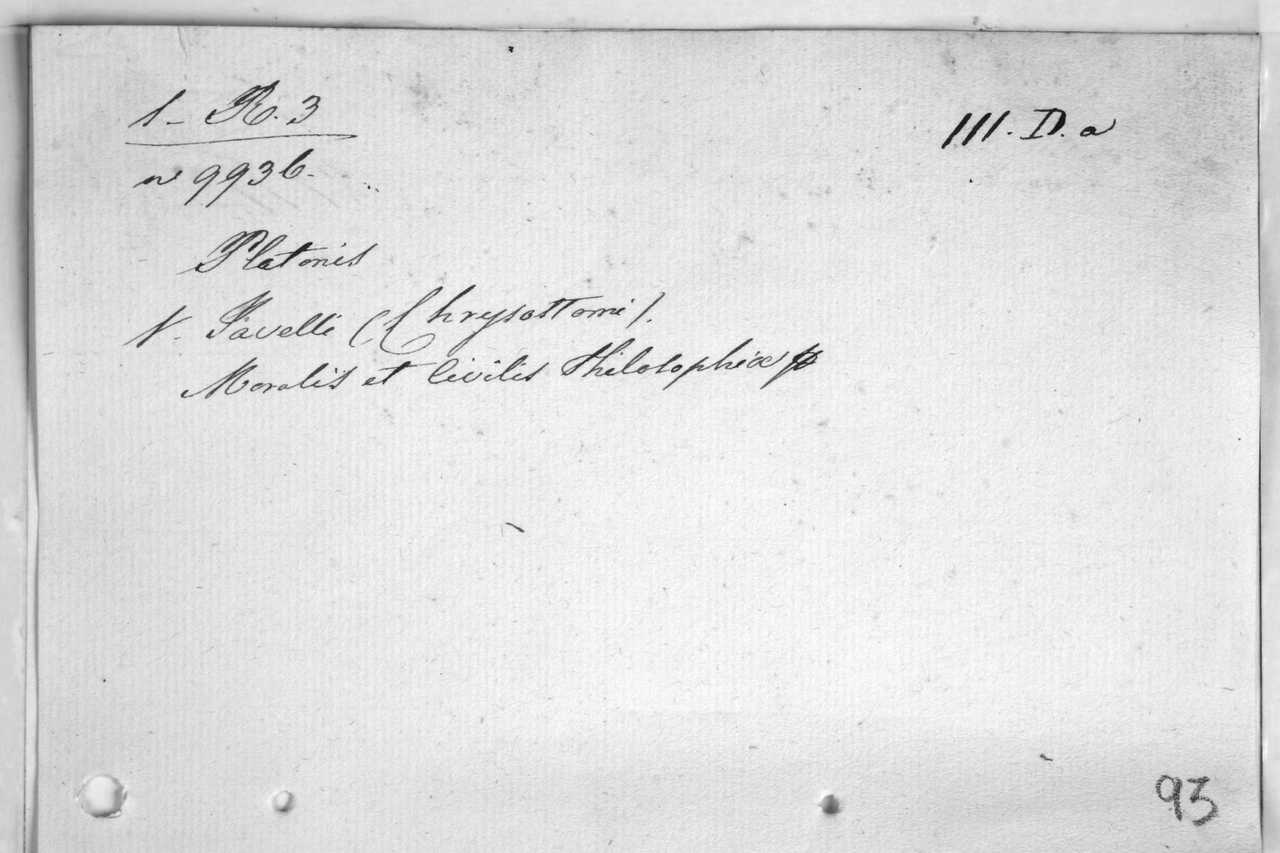 1- R. 3
III. D. a
n 9936.
Platonis
V. Javelli (Chrysostomi).
Moralis et Civilis Philosophiæ
93